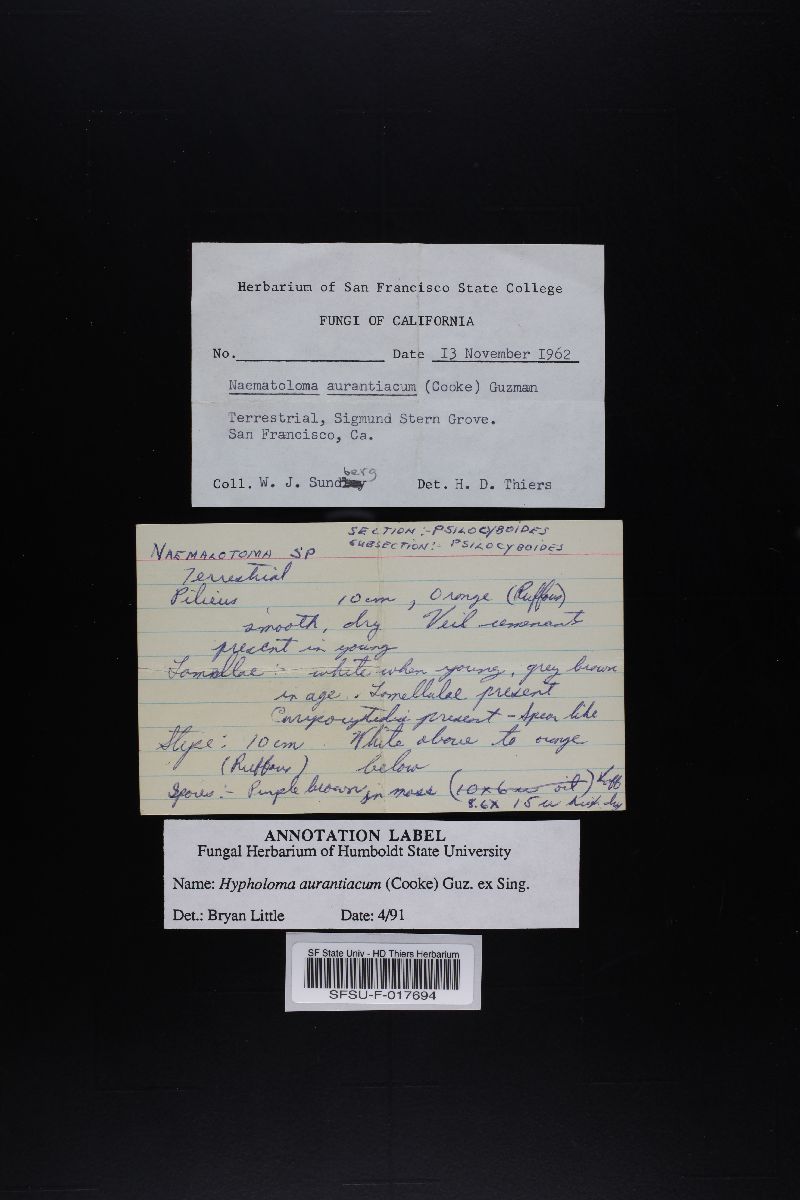 Herbarium of San Francisco State College
FUNGI OF CALIFORNIA
No. Date 13 November 1962
Naematoloma aurantiacum (Cooke) Guzman
Terrestrial, Sigmund Stern Grove.
San Francisco, Ca.
Coll. W. J. Sundberg Det. H. D. Thiers
SECTION:- PSILOCYBOIDES
NAEMALOTOMA SP SUBSECTION:- PSILOCYBOIDES
Terrestrial
Pilieus 10cm, Orange (Ruffous)
smooth, dry Veil remenants
present in young
Lamellae:- white when young, grey brown
in age. Lamellulae present
present - Spear like
Stype: 10cm. White above to orange
(Ruffous) below
Spores:- Purple brown in mass (10x6 oil)
8.6x 15 u
ANNOTATION LABEL
Fungal Herbarium of Humboldt State University
Name: Hypholoma aurantiacum (Cooke) Guz. ex Sing.
Det.: Bryan Little Date: 4/91
SF State Univ - HD Thiers Herbarium
SFSU-F-017694